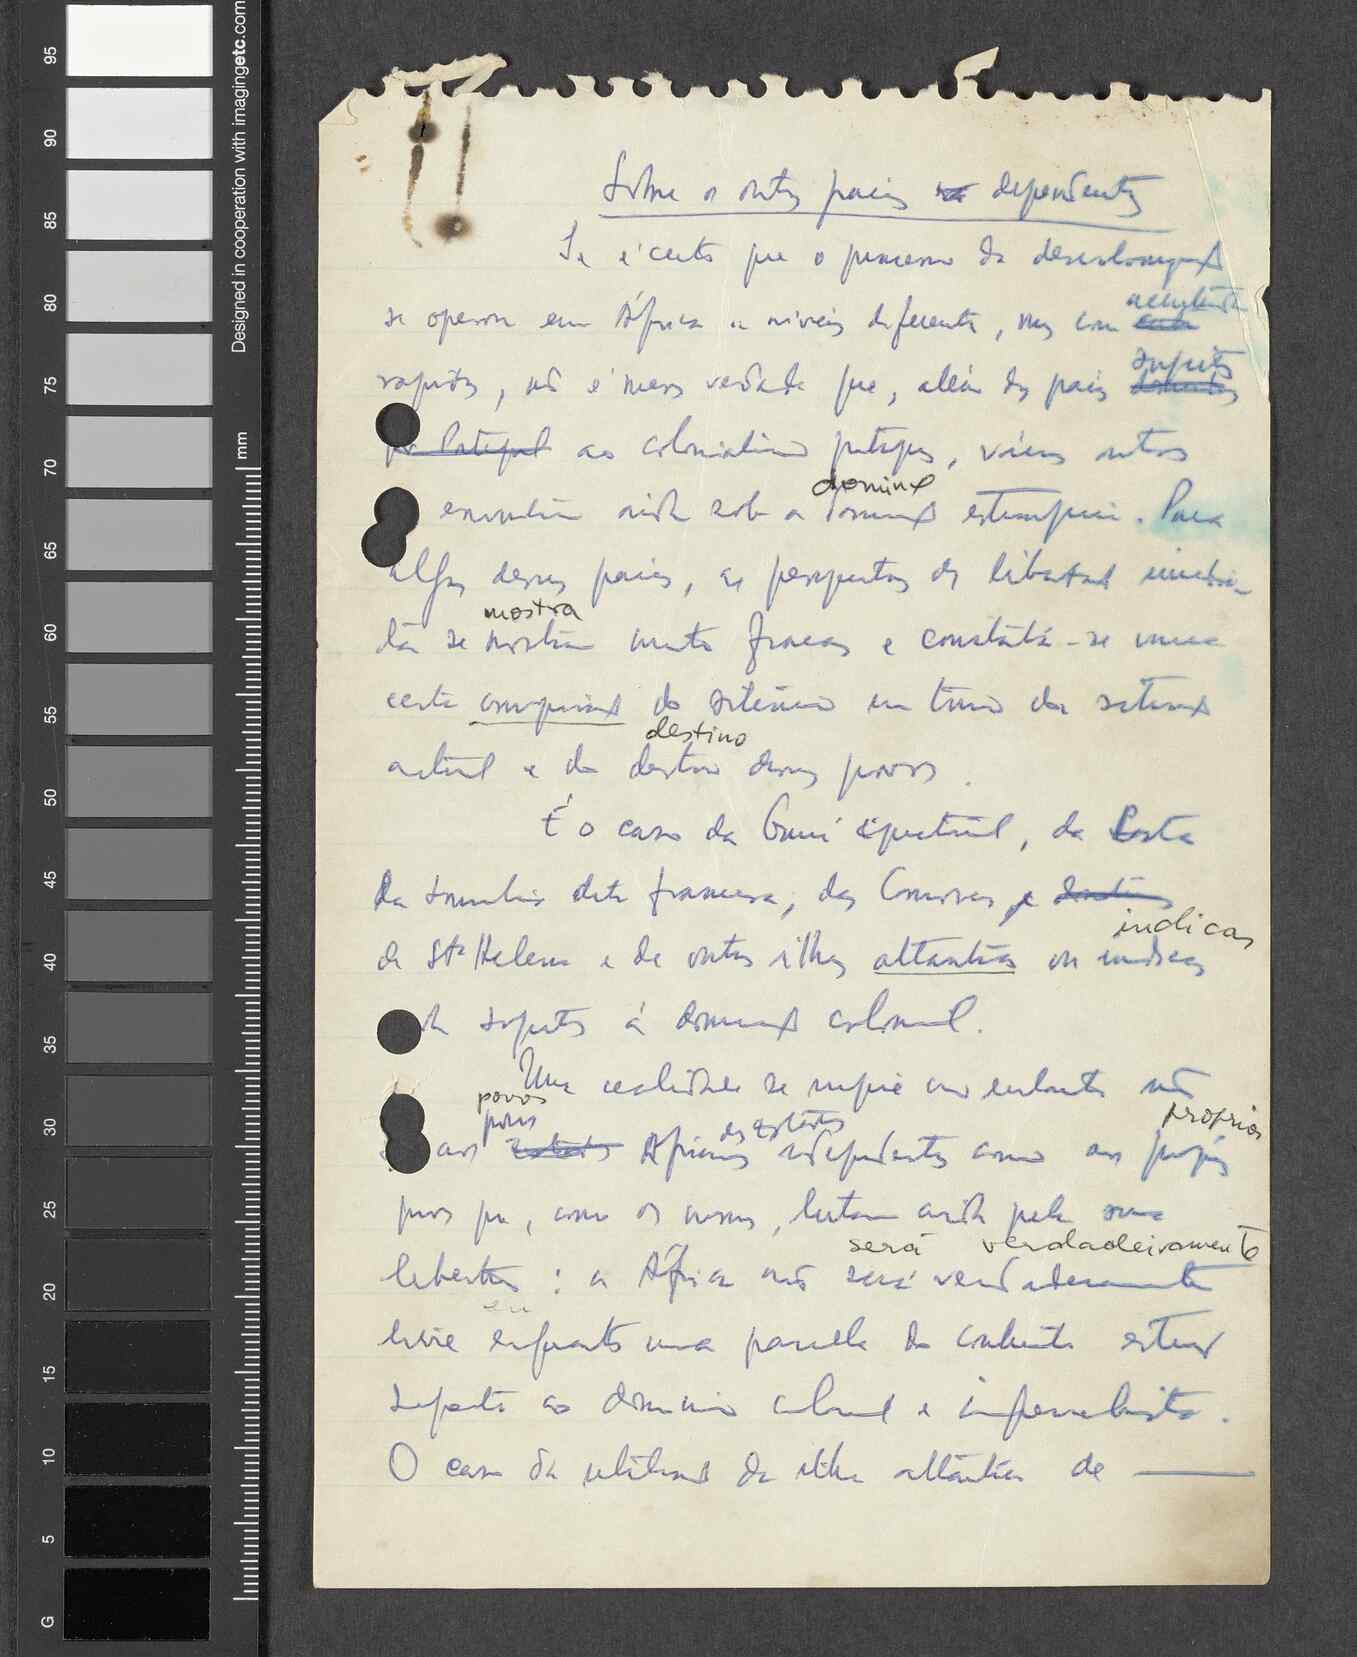 Designed in cooperation with imagingetc.com
mm
95
90
85
80
75
70
65
60
55
50
45
40
35
30
25
20
15
10
5
G
Sobre os outros países dependentes
Se é certo que o processo da descolonização
se operou em África a níveis diferentes, mas com
rapidez, não é menos verdade que, além dos países sujeitos
por Portugal ao colonialismo português, vários outros
domínação
encontram ainda sob a dominação estrangeira. Para
alguns desses países, as perspectivas de libertação imedia-
mostra
tá se mostram muito fracas e constata-se uma
certa conspiração do silêncio em torno da situação
destino
actual e do destino desses povos.
É o caso da Guiné Equatorial, da Costa
da Somália dita francesa, das Comores, e
indicas
de Sta Helena e de outras ilhas atlânticas ou indicas
sujeitas à dominação colonial.
Uma realidade se impõe no entanto não
povos
povos dos Estados próprios
aos Estados Africanos independentes como aos próprios
povos que, como os nossos, lutam ainda pela sua
será verdadeiramente
libertação: a África não será verdadeiramente
en
livre enquanto uma parcela do continente estiver
sujeita ao domínio colonial e imperialista.
O caso da utilização da ilha atlântica de